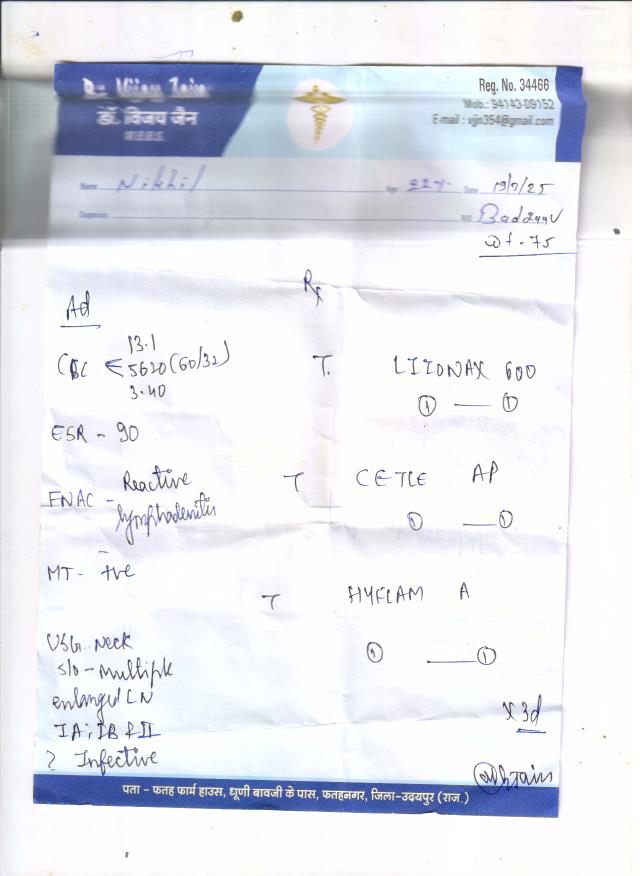 Dr. Vijay Jain
डॉ. विजय जैन
M.B.B.S.
Reg. No. 34466
Mob.: 94143-09152
E-mail : vjjn354@gmail.com
Name Nikhil Age 22y. Date 19/7/25
Diagnosis R/O
wt - 75
Rx
Ad
CBC 13.1
5620 (60/32)
3.40
T. LIZONAX 600
① — ①
ESR - 90
FNAC - Reactive
lymphadenitis
T AP
① — ①
MT - +ve
T. HYFLAM A
① — ①
USG Neck
s/o - Multiple
enlarged LN
IA; IB & II
? Infective
x 3d
पता - फतह फार्म हाउस, धूणी बावजी के पास, फतहनगर, जिला-उदयपुर (राज.)